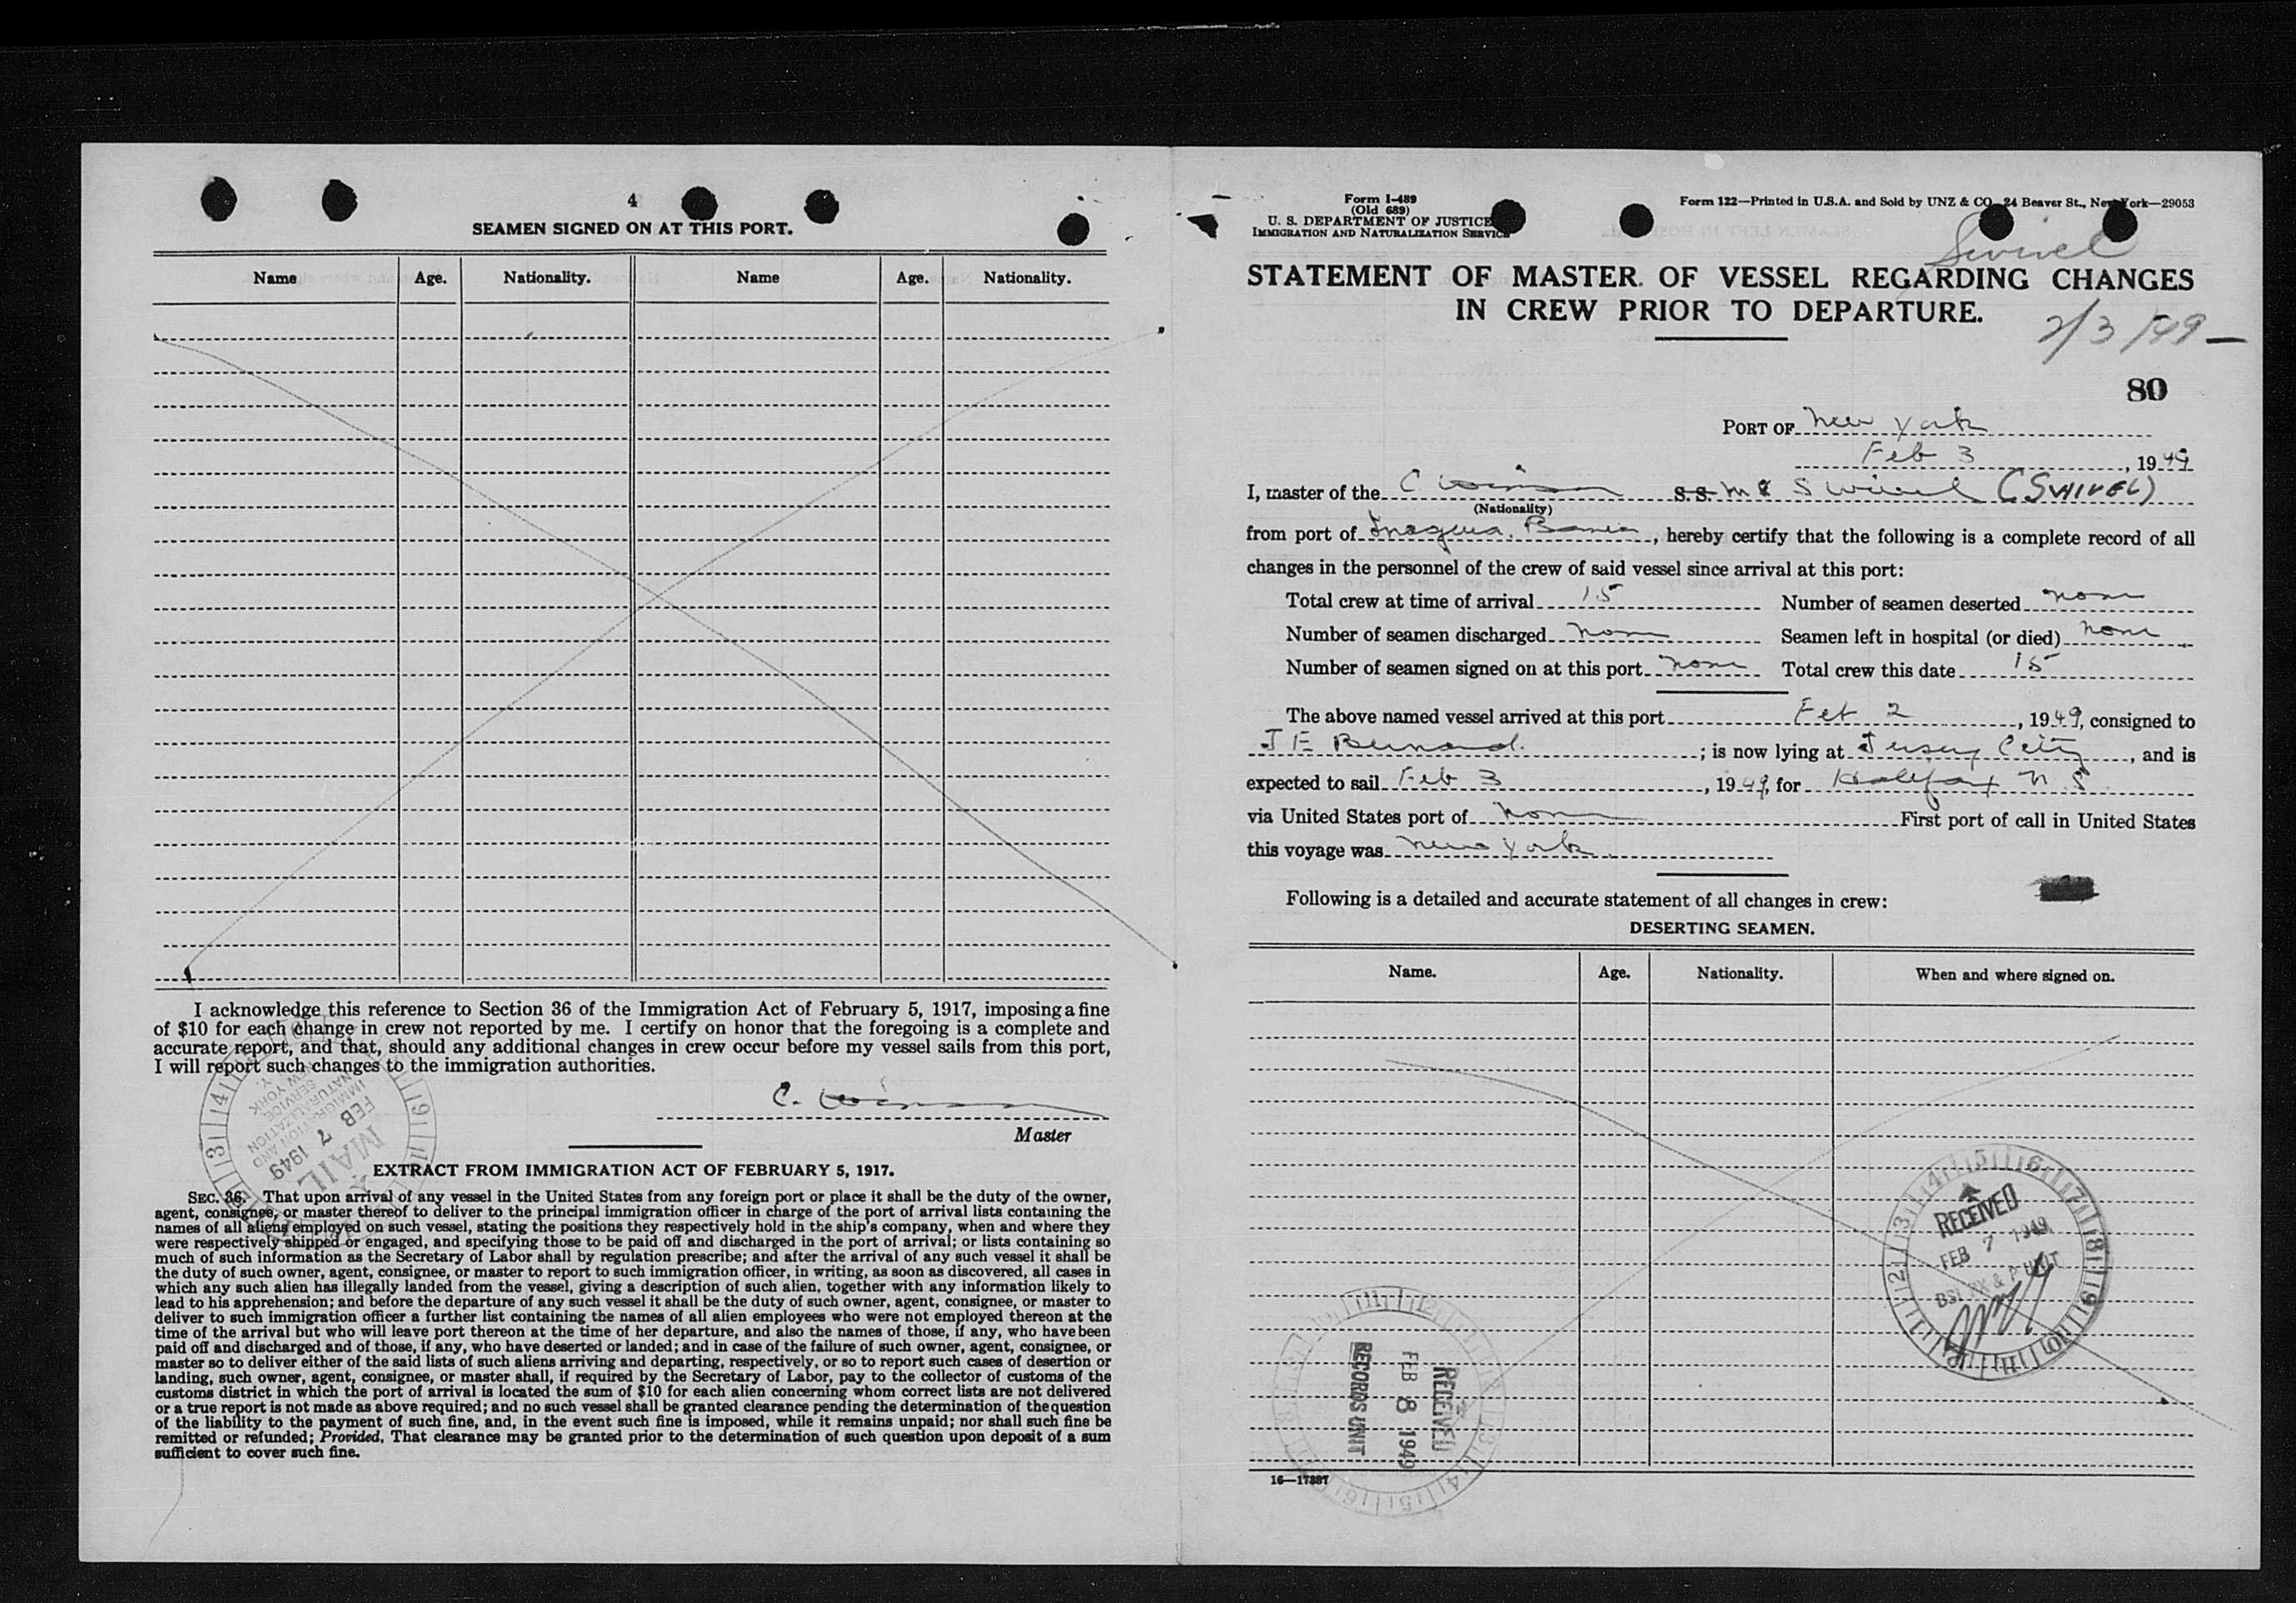 4
SEAMEN SIGNED ON AT THIS PORT.
Name Age. Nationality. Name Age. Nationality.
I acknowledge this reference to Section 36 of the Immigration Act of February 5, 1917, imposing a fine
of $10 for each change in crew not reported by me. I certify on honor that the foregoing is a complete and
accurate report, and that, should any additional changes in crew occur before my vessel sails from this port,
I will report such changes to the immigration authorities.
C.
Master
MAIL
FEB 7 1949
IMMIGRATION AND
NATURALIZATION
SERVICE
NEW YORK
N. Y.
EXTRACT FROM IMMIGRATION ACT OF FEBRUARY 5, 1917.
SEC. 36. That upon arrival of any vessel in the United States from any foreign port or place it shall be the duty of the owner,
agent, consignee, or master thereof to deliver to the principal immigration officer in charge of the port of arrival lists containing the
names of all aliens employed on such vessel, stating the positions they respectively hold in the ship's company, when and where they
were respectively shipped or engaged, and specifying those to be paid off and discharged in the port of arrival; or lists containing so
much of such information as the Secretary of Labor shall by regulation prescribe; and after the arrival of any such vessel it shall be
the duty of such owner, agent, consignee, or master to report to such immigration officer, in writing, as soon as discovered, all cases in
which any such alien has illegally landed from the vessel, giving a description of such alien, together with any information likely to
lead to his apprehension; and before the departure of any such vessel it shall be the duty of such owner, agent, consignee, or master to
deliver to such immigration officer a further list containing the names of all alien employees who were not employed thereon at the
time of the arrival but who will leave port thereon at the time of her departure, and also the names of those, if any, who have been
paid off and discharged and of those, if any, who have deserted or landed; and in case of the failure of such owner, agent, consignee, or
master so to deliver either of the said lists of such aliens arriving and departing, respectively, or so to report such cases of desertion or
landing, such owner, agent, consignee, or master shall, if required by the Secretary of Labor, pay to the collector of customs of the
customs district in which the port of arrival is located the sum of $10 for each alien concerning whom correct lists are not delivered
or a true report is not made as above required; and no such vessel shall be granted clearance pending the determination of the question
of the liability to the payment of such fine, and, in the event such fine is imposed, while it remains unpaid; nor shall such fine be
remitted or refunded; Provided, That clearance may be granted prior to the determination of such question upon deposit of a sum
sufficient to cover such fine.
Form I-489
(Old 689)
U. S. DEPARTMENT OF JUSTICE
IMMIGRATION AND NATURALIZATION SERVICE
Form 122—Printed in U.S.A. and Sold by UNZ & CO. 24 Beaver St., New York—29053
Swivel
STATEMENT OF MASTER OF VESSEL REGARDING CHANGES
IN CREW PRIOR TO DEPARTURE.
2/3/49—
80
PORT OF New York
Feb 3, 1949
I, master of the C. S.S. Swivel (SWIVEL)
(Nationality)
from port of Inagua, hereby certify that the following is a complete record of all
changes in the personnel of the crew of said vessel since arrival at this port:
Total crew at time of arrival 15 Number of seamen deserted none
Number of seamen discharged none Seamen left in hospital (or died) none
Number of seamen signed on at this port none Total crew this date 15
The above named vessel arrived at this port Feb 2, 1949, consigned to
J E Bernard; is now lying at Jersey City, and is
expected to sail Feb 3, 1949, for Halifax N.S.
via United States port of None First port of call in United States
this voyage was New York
Following is a detailed and accurate statement of all changes in crew:
DESERTING SEAMEN.
Name. Age. Nationality. When and where signed on.
RECEIVED
FEB 7 1949
RECEIVED
FEB 8 1949
RECORDS UNIT
16—17887